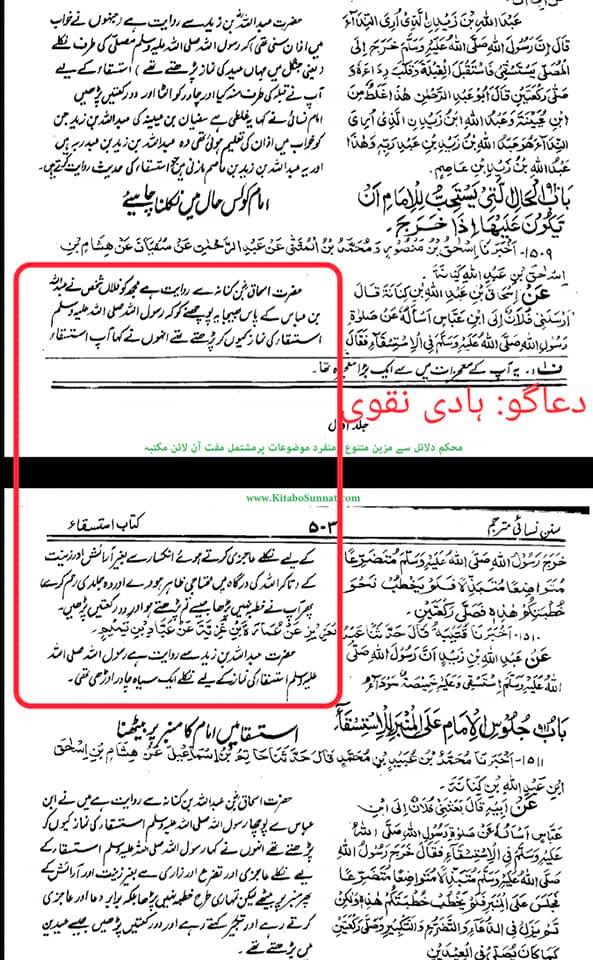 عبد اللہ بن زید الذی اری النداء
قال ان رسول اللہ صلی اللہ علیہ وسلم خرج الی
المصلی یستسقی فاستقبل القبلة وقلب رداءہ و
صلی رکعتین قال ابو عبد الرحمٰن ھذا غلط من
ابن عیینة وعبد اللہ ابن زید ن الذی اری
النداء ھو عبد اللہ بن زید بن عبد ربہ وھذا
عبد اللہ بن زید بن عاصم۔
حضرت عبد اللہ بن زید سے روایت ہے (جنہوں نے خواب
میں اذان سنی تھی) کہ رسول اللہ صلی اللہ علیہ وسلم مصلی کی طرف نکلے
(یعنی جنگل میں جہاں عید کی نماز پڑھتے تھے) استسقاء کے لیے
آپ نے قبلہ کی طرف منہ کیا اور چادر کو الٹا اور دو رکعتیں پڑھیں
امام نسائی نے کہا یہ غلطی ہے سفیان بن عیینہ کی عبد اللہ بن زید جن
کو خواب میں اذان کی تعلیم ہوئی تھی وہ عبد اللہ بن زید بن عبد ربہ ہیں
اور یہ عبد اللہ بن زید بن عاصم مازنی ہیں جو استسقاء کی حدیث روایت کرتے ہیں۔
باب الحال التی یستحب للامام ان
یکون علیھا اذا خرج۔
امام کو کس حال میں نکلنا چاہیے
۱۵۰۹- اخبرنا اسحٰق بن منصور ومحمد بن المثنی عن عبد الرحمٰن عن سفیان عن ھشام بن
اسحٰق بن عبد اللہ کنانة
عن اسحاق بن عبد اللہ بن کنانة قال
ارسلنی فلان الی ابن عباس اسالہ عن صلوة
رسول اللہ صلی اللہ علیہ وسلم فی الاستسقاء فقال
حضرت اسحاق بن کنانہ سے روایت ہے مجھ کو فلاں شخص نے عبد اللہ
بن عباس کے پاس بھیجا یہ پوچھنے کو کہ رسول اللہ صلی اللہ علیہ وسلم
استسقاء کی نماز کیوں کر پڑھتے تھے انہوں نے کہا آپ استسقاء
ف۱۔ یہ آپ کے معجزات میں سے ایک بڑا معجزہ تھا۔
دعاگو: ہادی نقوی
جلد اول
محکم دلائل سے مزین متنوع و منفرد موضوعات پر مشتمل مفت آن لائن مکتبہ
www.KitaboSunnat.com
سنن نسائی مترجم
۵۰۳
کتاب استسقاء
خرج رسول اللہ صلی اللہ علیہ وسلم متضرعا
متواضعا متبذلا فلم یخطب نحو
خطبتکم ھذہ فصلی رکعتین۔
کے لیے نکلے عاجزی کرتے ہوئے انکسار سے بغیر آرائش اور زینت
کے (تاکہ اللہ کی درگاہ میں محتاجی ظاہر ہووے اور وہ جلدی رحم کرے)
پھر آپ نے خطبہ نہیں پڑھا جیسے تم پڑھتے ہو اور دو رکعتیں پڑھیں۔
۱۵۱۰- اخبرنا قتیبة قال حدثنا عبد العزیز عن عمارة بن غزیة عن عباد بن تمیم۔
عن عبد اللہ بن زید ان رسول اللہ صلی
اللہ علیہ وسلم استسقی وعلیہ خمیصة سوداء
حضرت عبد اللہ بن زید سے روایت ہے رسول اللہ صلی اللہ
علیہ وسلم استسقاء کی نماز کے لیے نکلے ایک سیاہ چادر اوڑھی تھی۔
باب جلوس الامام علی المنبر للاستسقاء
استسقاء میں امام کا منبر پر بیٹھنا
۱۵۱۱- اخبرنا محمد بن عبید بن محمد قال حدثنا حاتم بن اسماعیل عن ھشام بن اسحٰق
ابن عبد اللہ بن کنانة۔
عن ابیہ قال بعثنی فلان الی ابن
عباس اسالہ عن صلوة رسول اللہ صلی اللہ
علیہ وسلم فی الاستسقاء فقال خرج رسول اللہ
صلی اللہ علیہ وسلم متبذلا متواضعا متضرعا
فجلس علی المنبر فلم یخطب خطبتکم ھذہ ولکن
لم یزل فی الدعاء والتضرع والتکبیر وصلی رکعتین
کما کان یصلی فی العیدین
حضرت اسحاق بن عبد اللہ بن کنانہ سے روایت ہے میں نے ابن
عباس سے پوچھا رسول اللہ صلی اللہ علیہ وسلم استسقاء کی نماز کیوں کر
پڑھتے تھے انہوں نے کہا رسول اللہ صلی اللہ علیہ وسلم استسقاء کے
لیے نکلے عاجزی اور تضرع اور زاری سے بغیر زینت اور آرائش کے
پھر منبر پر بیٹھے لیکن تمہاری طرح خطبہ نہیں پڑھا بلکہ برابر دعا اور عاجزی
کرتے رہے اور تکبیر کہتے رہے اور دو رکعتیں پڑھیں جیسے عیدین
میں پڑھتے تھے۔